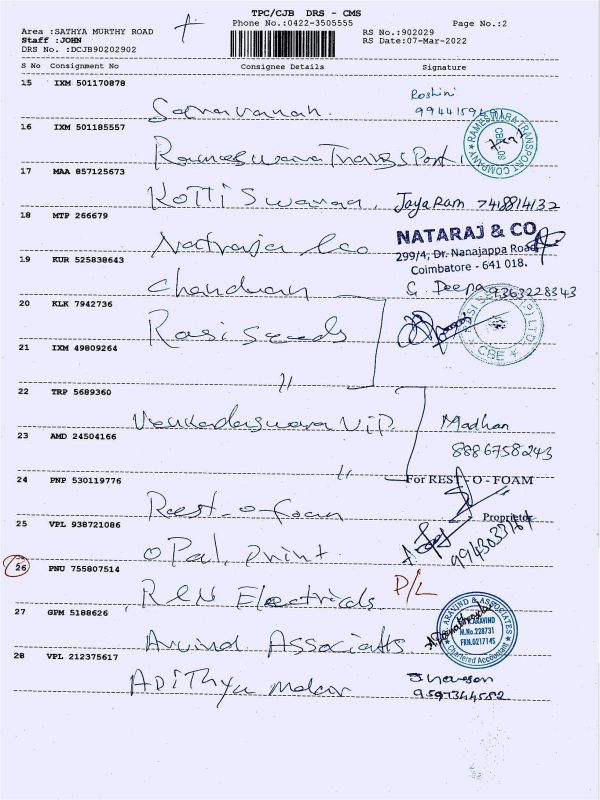 TPC/CJB DRS - CMS
Phone No.:0422-3505555
Page No.:2
Area :SATHYA MURTHY ROAD
Staff :JOHN
DRS No. :DCJB90202902
RS No.:902029
RS Date:07-Mar-2022
S No Consignment No Consignee Details Signature
15 IXM 501170878
Saravanan.
Roshini
16 IXM 501185557
Rameswara Transport
RAMESWARA TRANSPORT COMPANY
17 MAA 857125673
Kottiswaran, Jayaram 7418814132
18 MTP 266679
Nataraja & co
NATARAJ & CO
299/4, Dr. Nanajappa Road
Coimbatore - 641 018.
19 KUR 525838643
G. Deepa 9363228343
20 KLK 7942736
Rasi seeds
CBE
21 IXM 49809264
"
22 TRP 5689360
VIP. Madhan
8886758243
23 AMD 24504166
"
24 PNP 530119776
For REST - O - FOAM
Rest-o-foam
Proprietor
25 VPL 938721086
Opal print.
26 PNU 755807514
Electricals
P/L
27 GPM 5188626
Arvind Associates
ARAVIND & ASSOCIATES
M.No.228731
FRN.021714S
Chartered Accountant
28 VPL 212375617
Adithya
9597344582